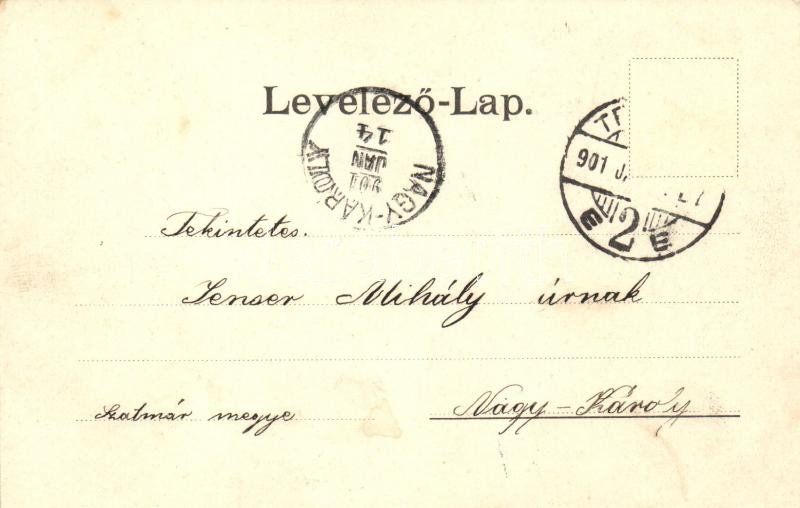 Levelező-Lap.
NAGY-KÁROLY
901
JAN
14
901 JA
2
E E
Tekintetes.
Jenser Mihály úrnak
Szatmár megye
Nagy-Károly